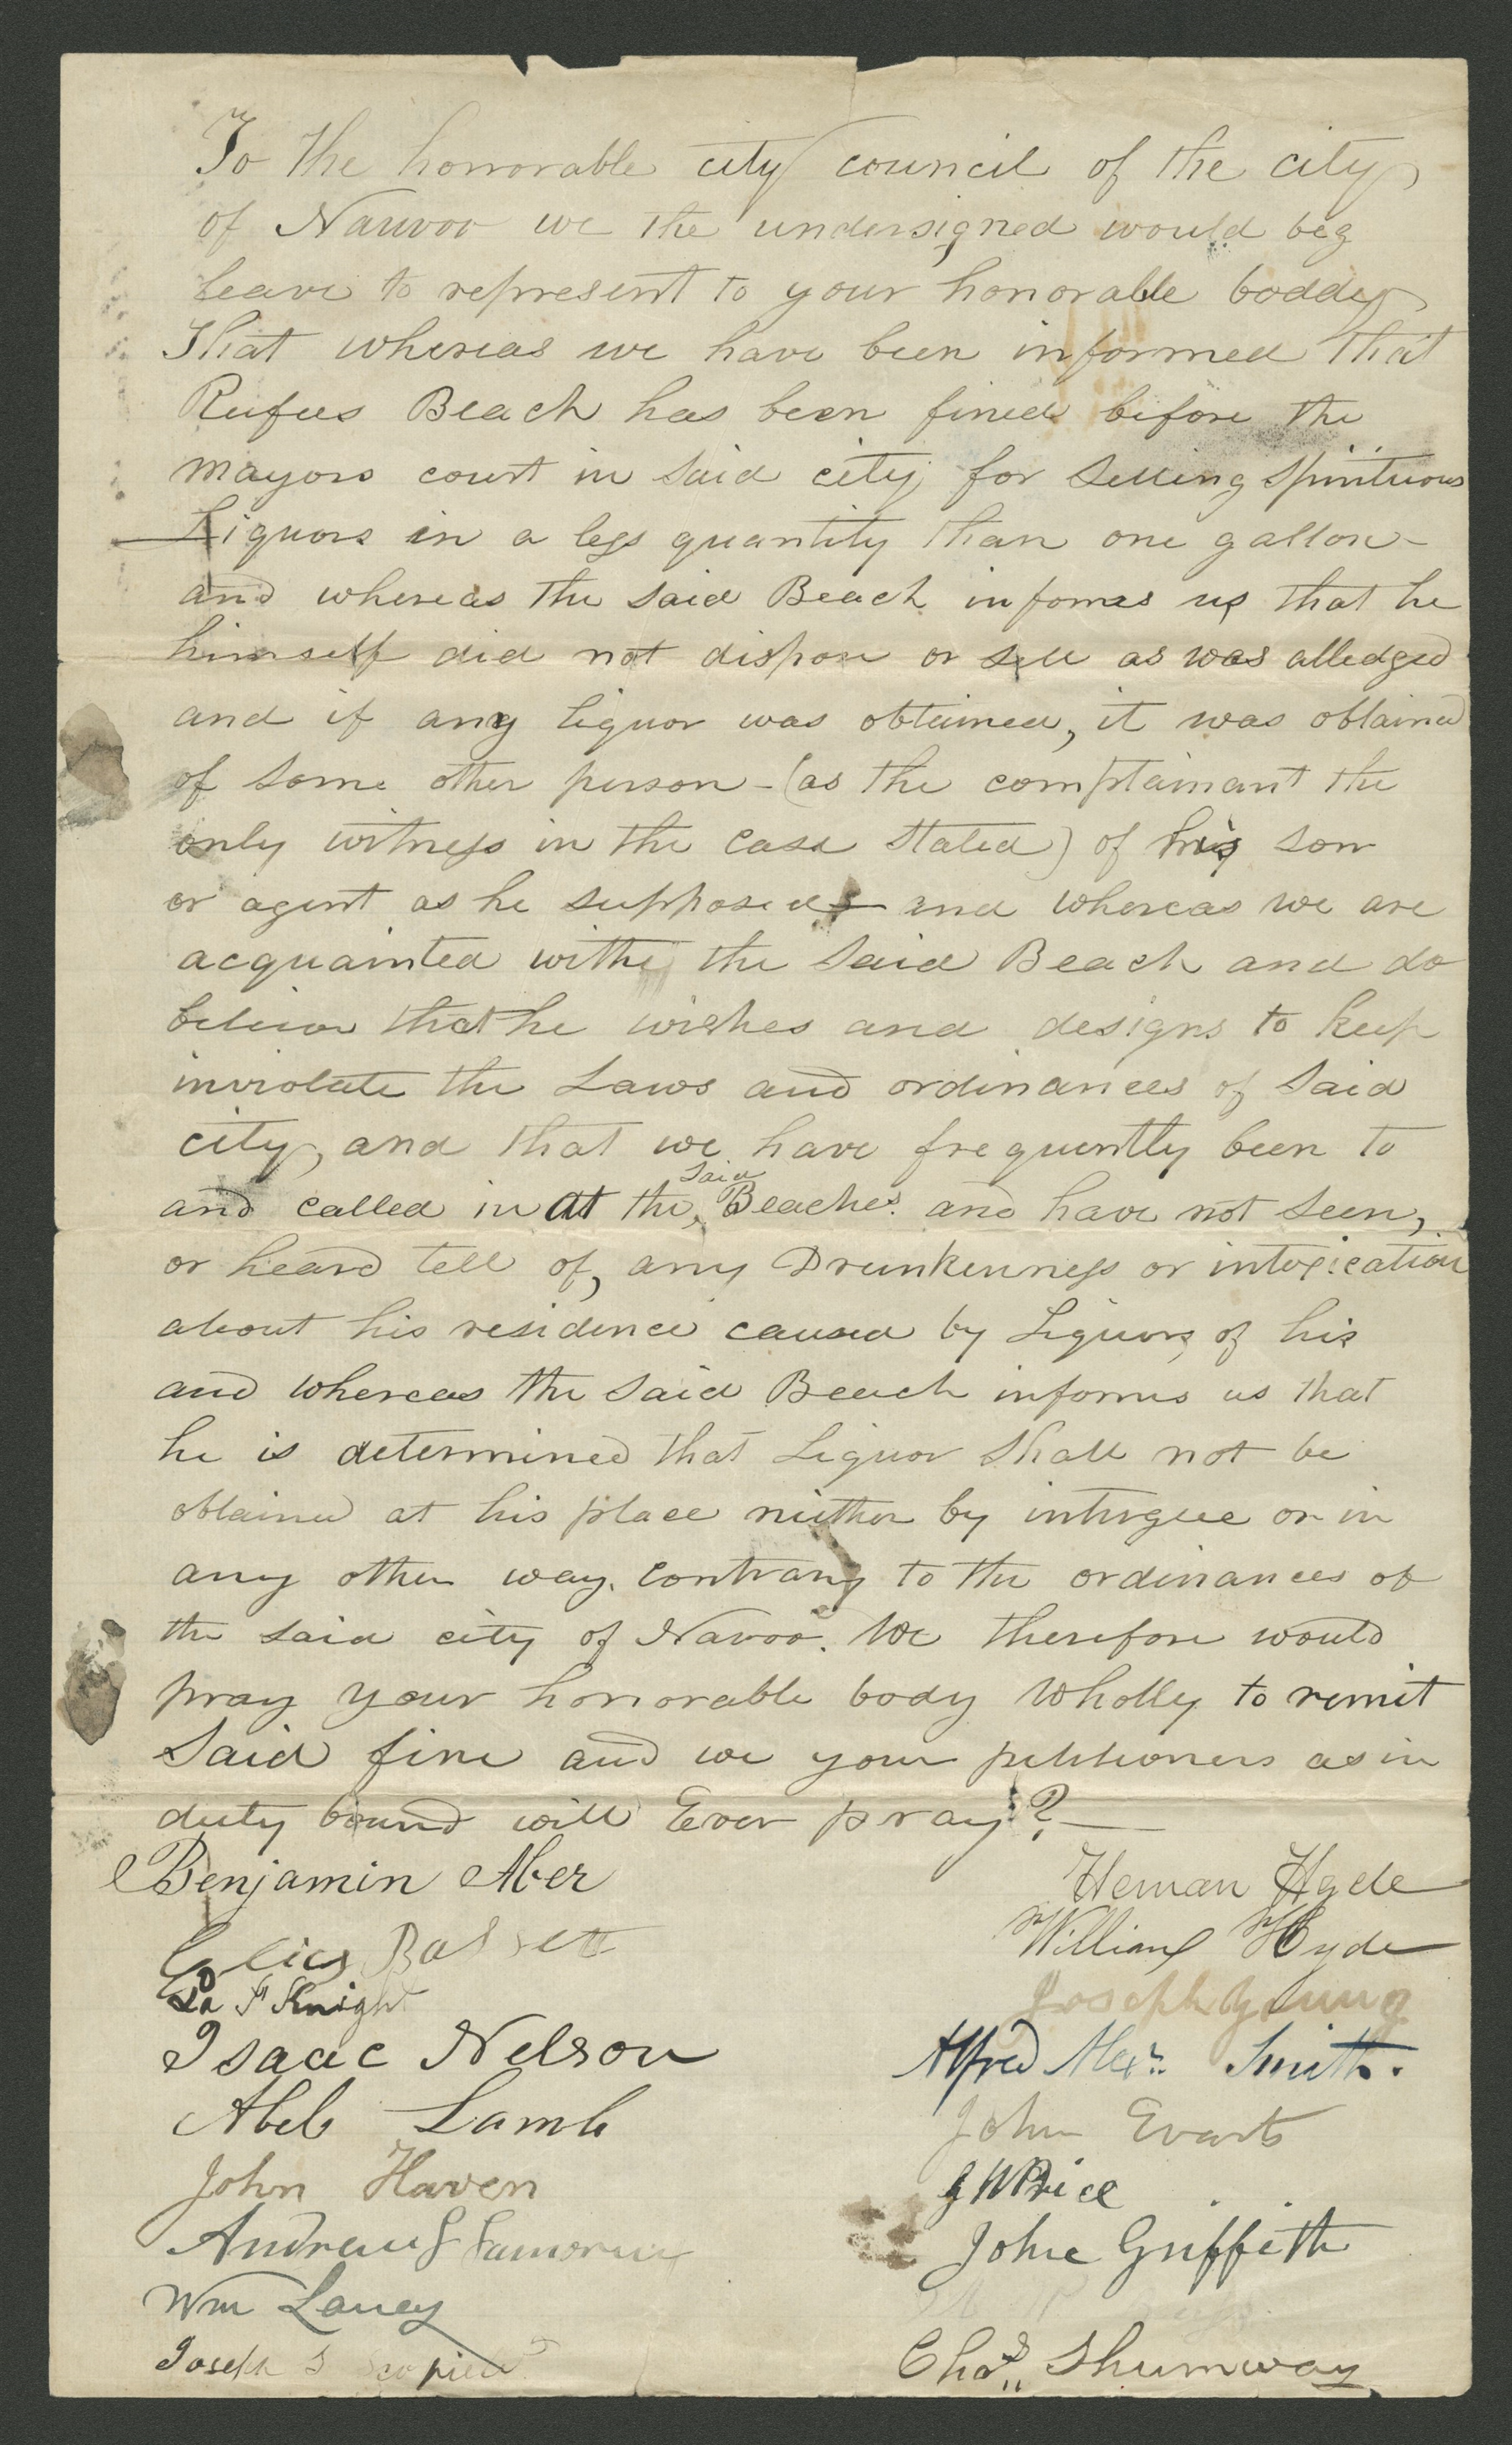 To the honorable city council of the city
of Nauvoo we the undersigned would beg
leave to represent to your honorable boddy
That whereas we have been informed that
Rufus Beach has been fined before the
mayors court in Said city for Selling Spirituous
Liquors in a less quantity than one gallon-
and whereas the Said Beach informs us that he
himself did not dispose or sell as was alledged
and if any liquor was obtained, it was obtained
of Some other person - (as the complainant the
only witness in the case Stated) of his son
or agent as he supposed - and whereas we are
acquainted withe the Said Beach and do
believe that he wishes and designs to keep
inviolate the Laws and ordinances of Said
city, and that we have frequently been to
and called in at the Said Beaches. and have not seen,
or heard tell of, any Drunkenness or intoxication
about his residence caused by Liquors of his
and whereas the Said Beach informs us that
he is determined that Liquor Shall not be
obtained at his place neither by intrigue or in
any other way. contrary to the ordinances of
the said city of Navoo. We therefore would
pray your honorable body Wholly to remit
Said fine and we your petitioners as in
duty bound will Ever pray?
Benjamin Aber
Bassett
Knight
Isaac Nelson
Abel Lamb
John Haven
Andrew
Wm Laney
Joseph
Heman Hyde
William Hyde
Joseph Young
Alfred Alexr. Smith.
John Evarts
J W Price
John Griffith
Chas. Shumway